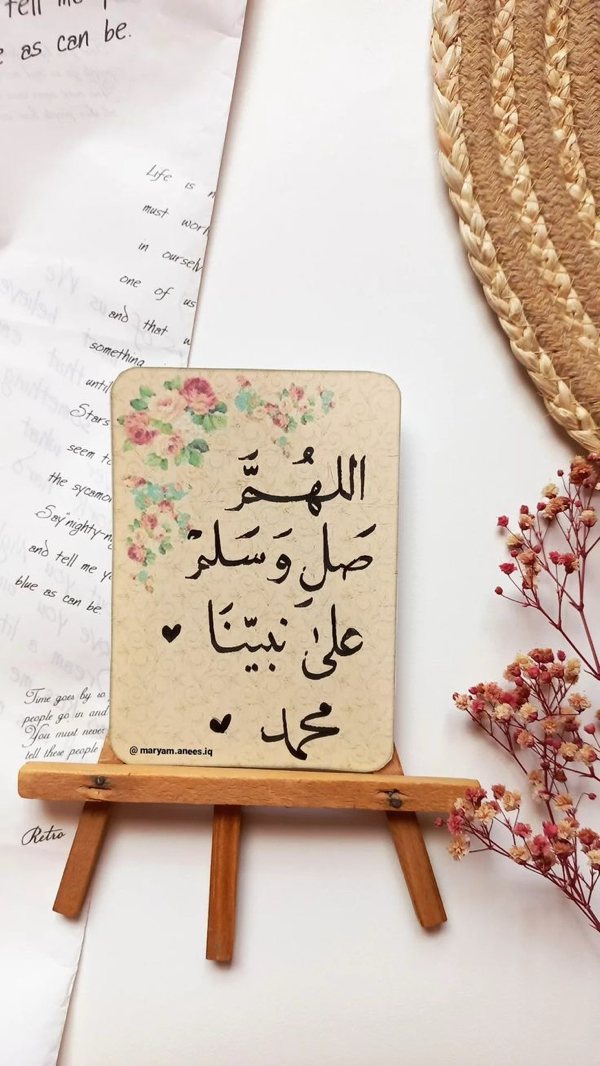 tell me
as can be.
Life is
must
in
one of us
and that
something
until
Stars
seem to
the
Say"nighty-n
and tell me
blue as can be.
Time goes by
people go in and
You must never
tell these people
Retro
اللهُمَّ
صَلِ وَسَلمْ
علىٰ نبيّنَا
محمد
@ maryam.anees.iq